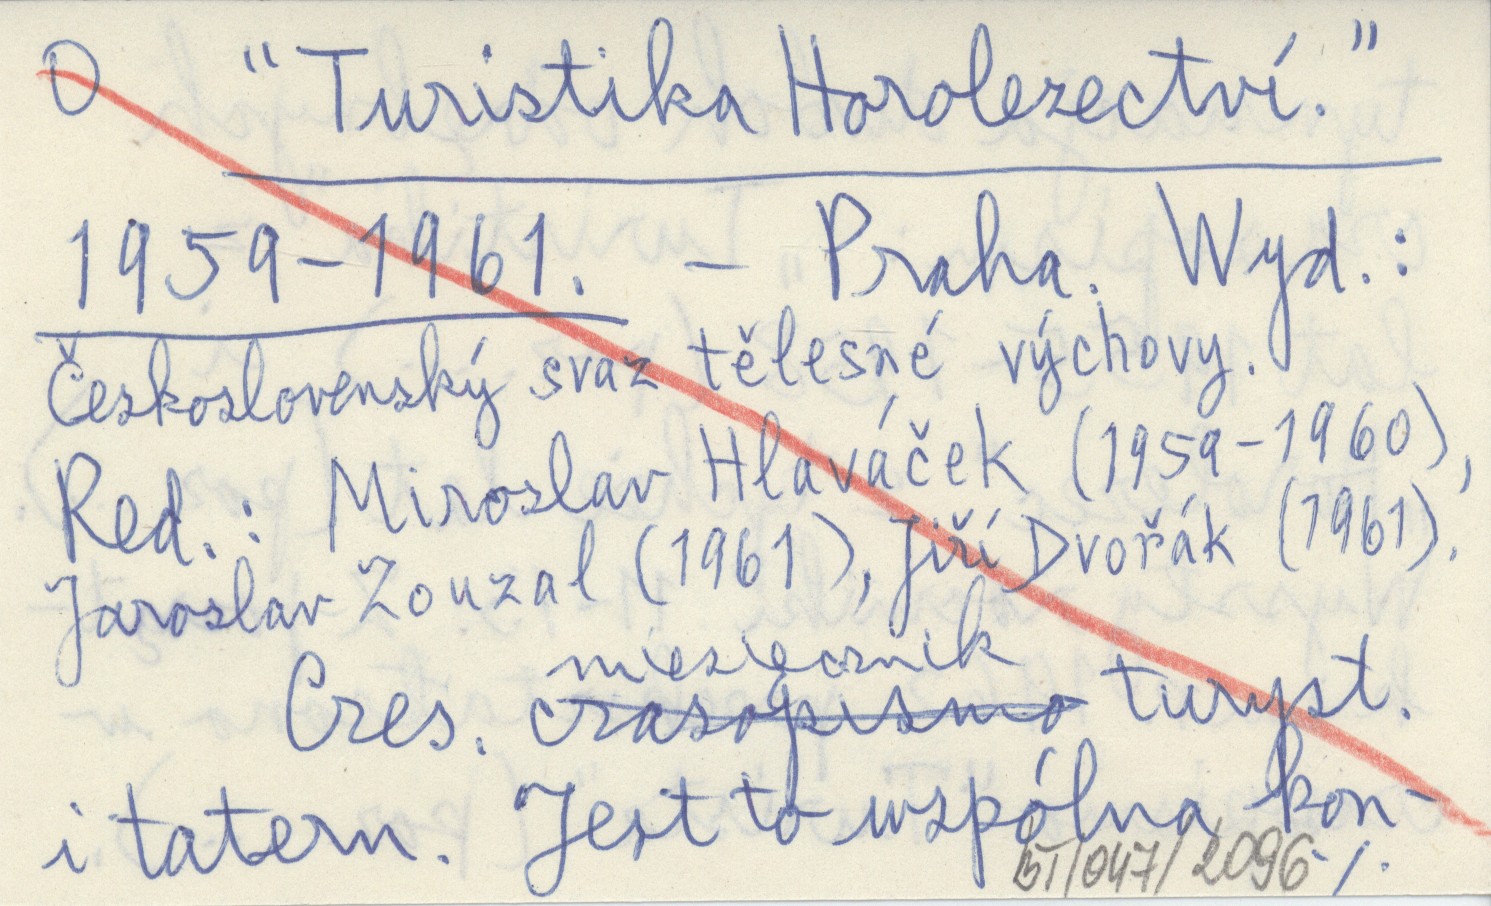 O "Turistika Horolezectví."
1959-1961. - Praha. Wyd.:
Československý svaz tělesné výchovy.
Red.: Miroslav Hlaváček (1959-1960),
Jaroslav Zouzal (1961), Jiří Dvořák (1961).
miesięcznik
Czes. czasopismo turyst.
i tatern. Jest to wspólna kon-
BT/047/2096 ./.